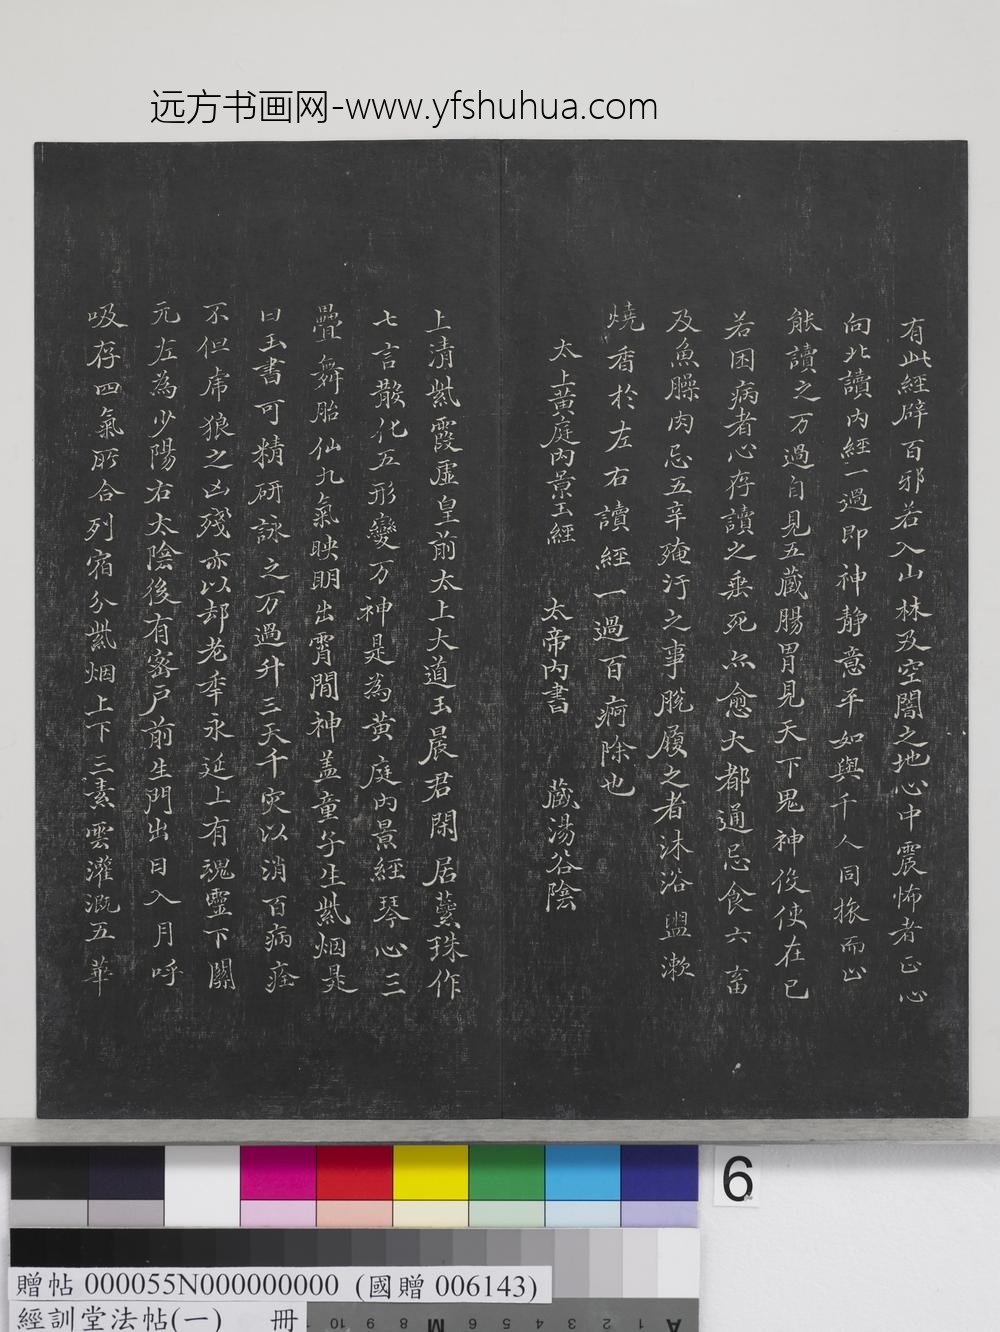 远方书画网-www.yfshuhua.com
有此經辟百邪若入山林及空闇之地心中震怖者正心
向北讀內經一過即神静意平如與千人同旅而止
能讀之万過自見五蔵腸胃見天下鬼神役使在己
若困病者心存讀之垂死亦愈大都通忌食六畜
及魚臊肉忌五辛殗汙之事脫履之者沐浴盥漱
燒香於左右讀經一過百痾除也
太上黄庭內景玉經 太帝內書 蔵湯谷陰
上清紫霞虛皇前太上大道玉晨君閑居蘂珠作
七言散化五形變万神是為黄庭內景經琴心三
疊舞胎仙九氣映明出霄閒神盖童子生紫烟是
曰玉書可精研詠之万過升三天千灾以消百病痊
不但虎狼之凶殘亦以却老年永延上有魂靈下關
元左為少陽右太陰後有密戶前生門出日入月呼
吸存四氣所合列宿分紫烟上下三素雲灌溉五華
6
贈帖 000055N000000000 (國贈 006143)
經訓堂法帖(一) 冊
10 9 8 M 6 5 4 3 2 1 A